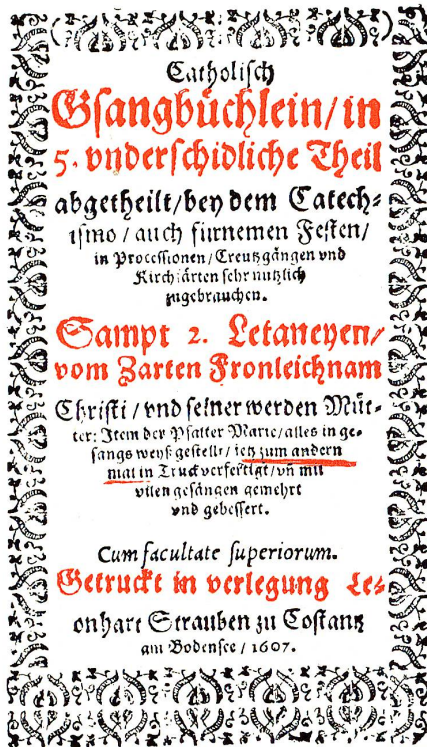 Catholisch
Gsangbüchlein/in
5. vnderschidliche Theil
abgetheilt/bey dem Catech-
ismo / auch fürnemen Festen/
in Processionen/Creutzgängen vnd
Kirchfärten sehr nutzlich
zugebrauchen.
Sampt 2. Letaneyen/
vom Zarten Fronleichnam
Christi / vnd seiner werden Müt-
ter: Item der Psalter Marie/alles in ge-
sangs weyß gestellt/ ietz zum andern
mal in Truck verfertigt/vñ mit
vilen gesängen gemehrt
vnd gebessert.
Cum facultate superiorum.
Getruckt in verlegung Le-
onhart Strauben zu Costantz
am Bodensee / 1607.